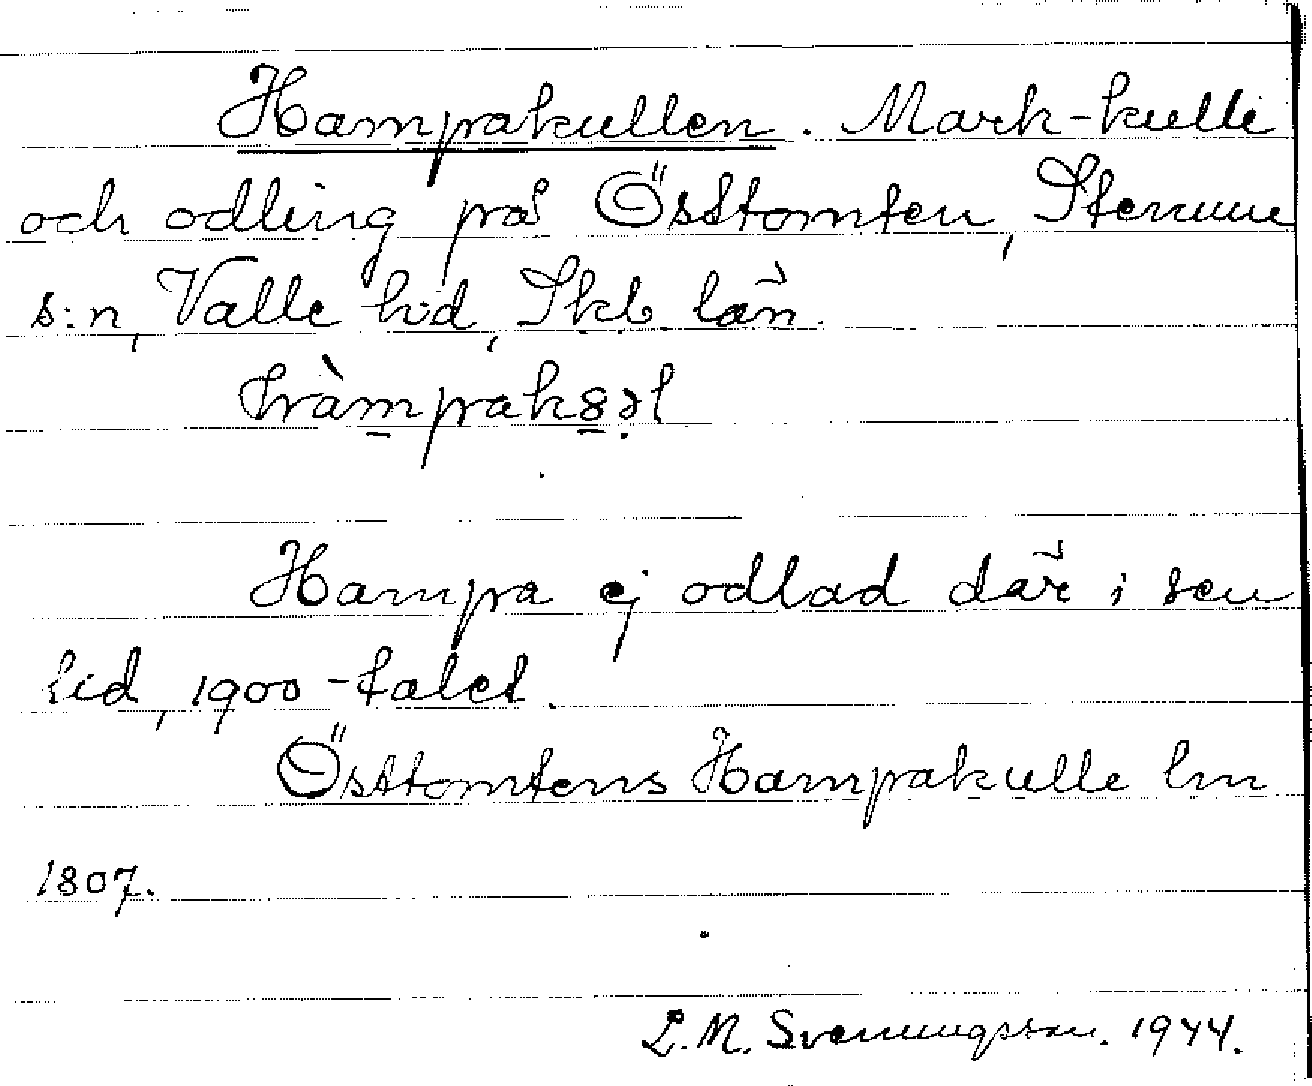 Hampakullen. Mark-kulle
och odling på Östtomten, Stenum
s:n, Valle hd, Skb. län.
hàmpak8əl
Hampa ej odlad där i sen
tid, 1900-talet.
Östtomtens Hampakulle lm
1807.
L.M. Svenungsson. 1944.